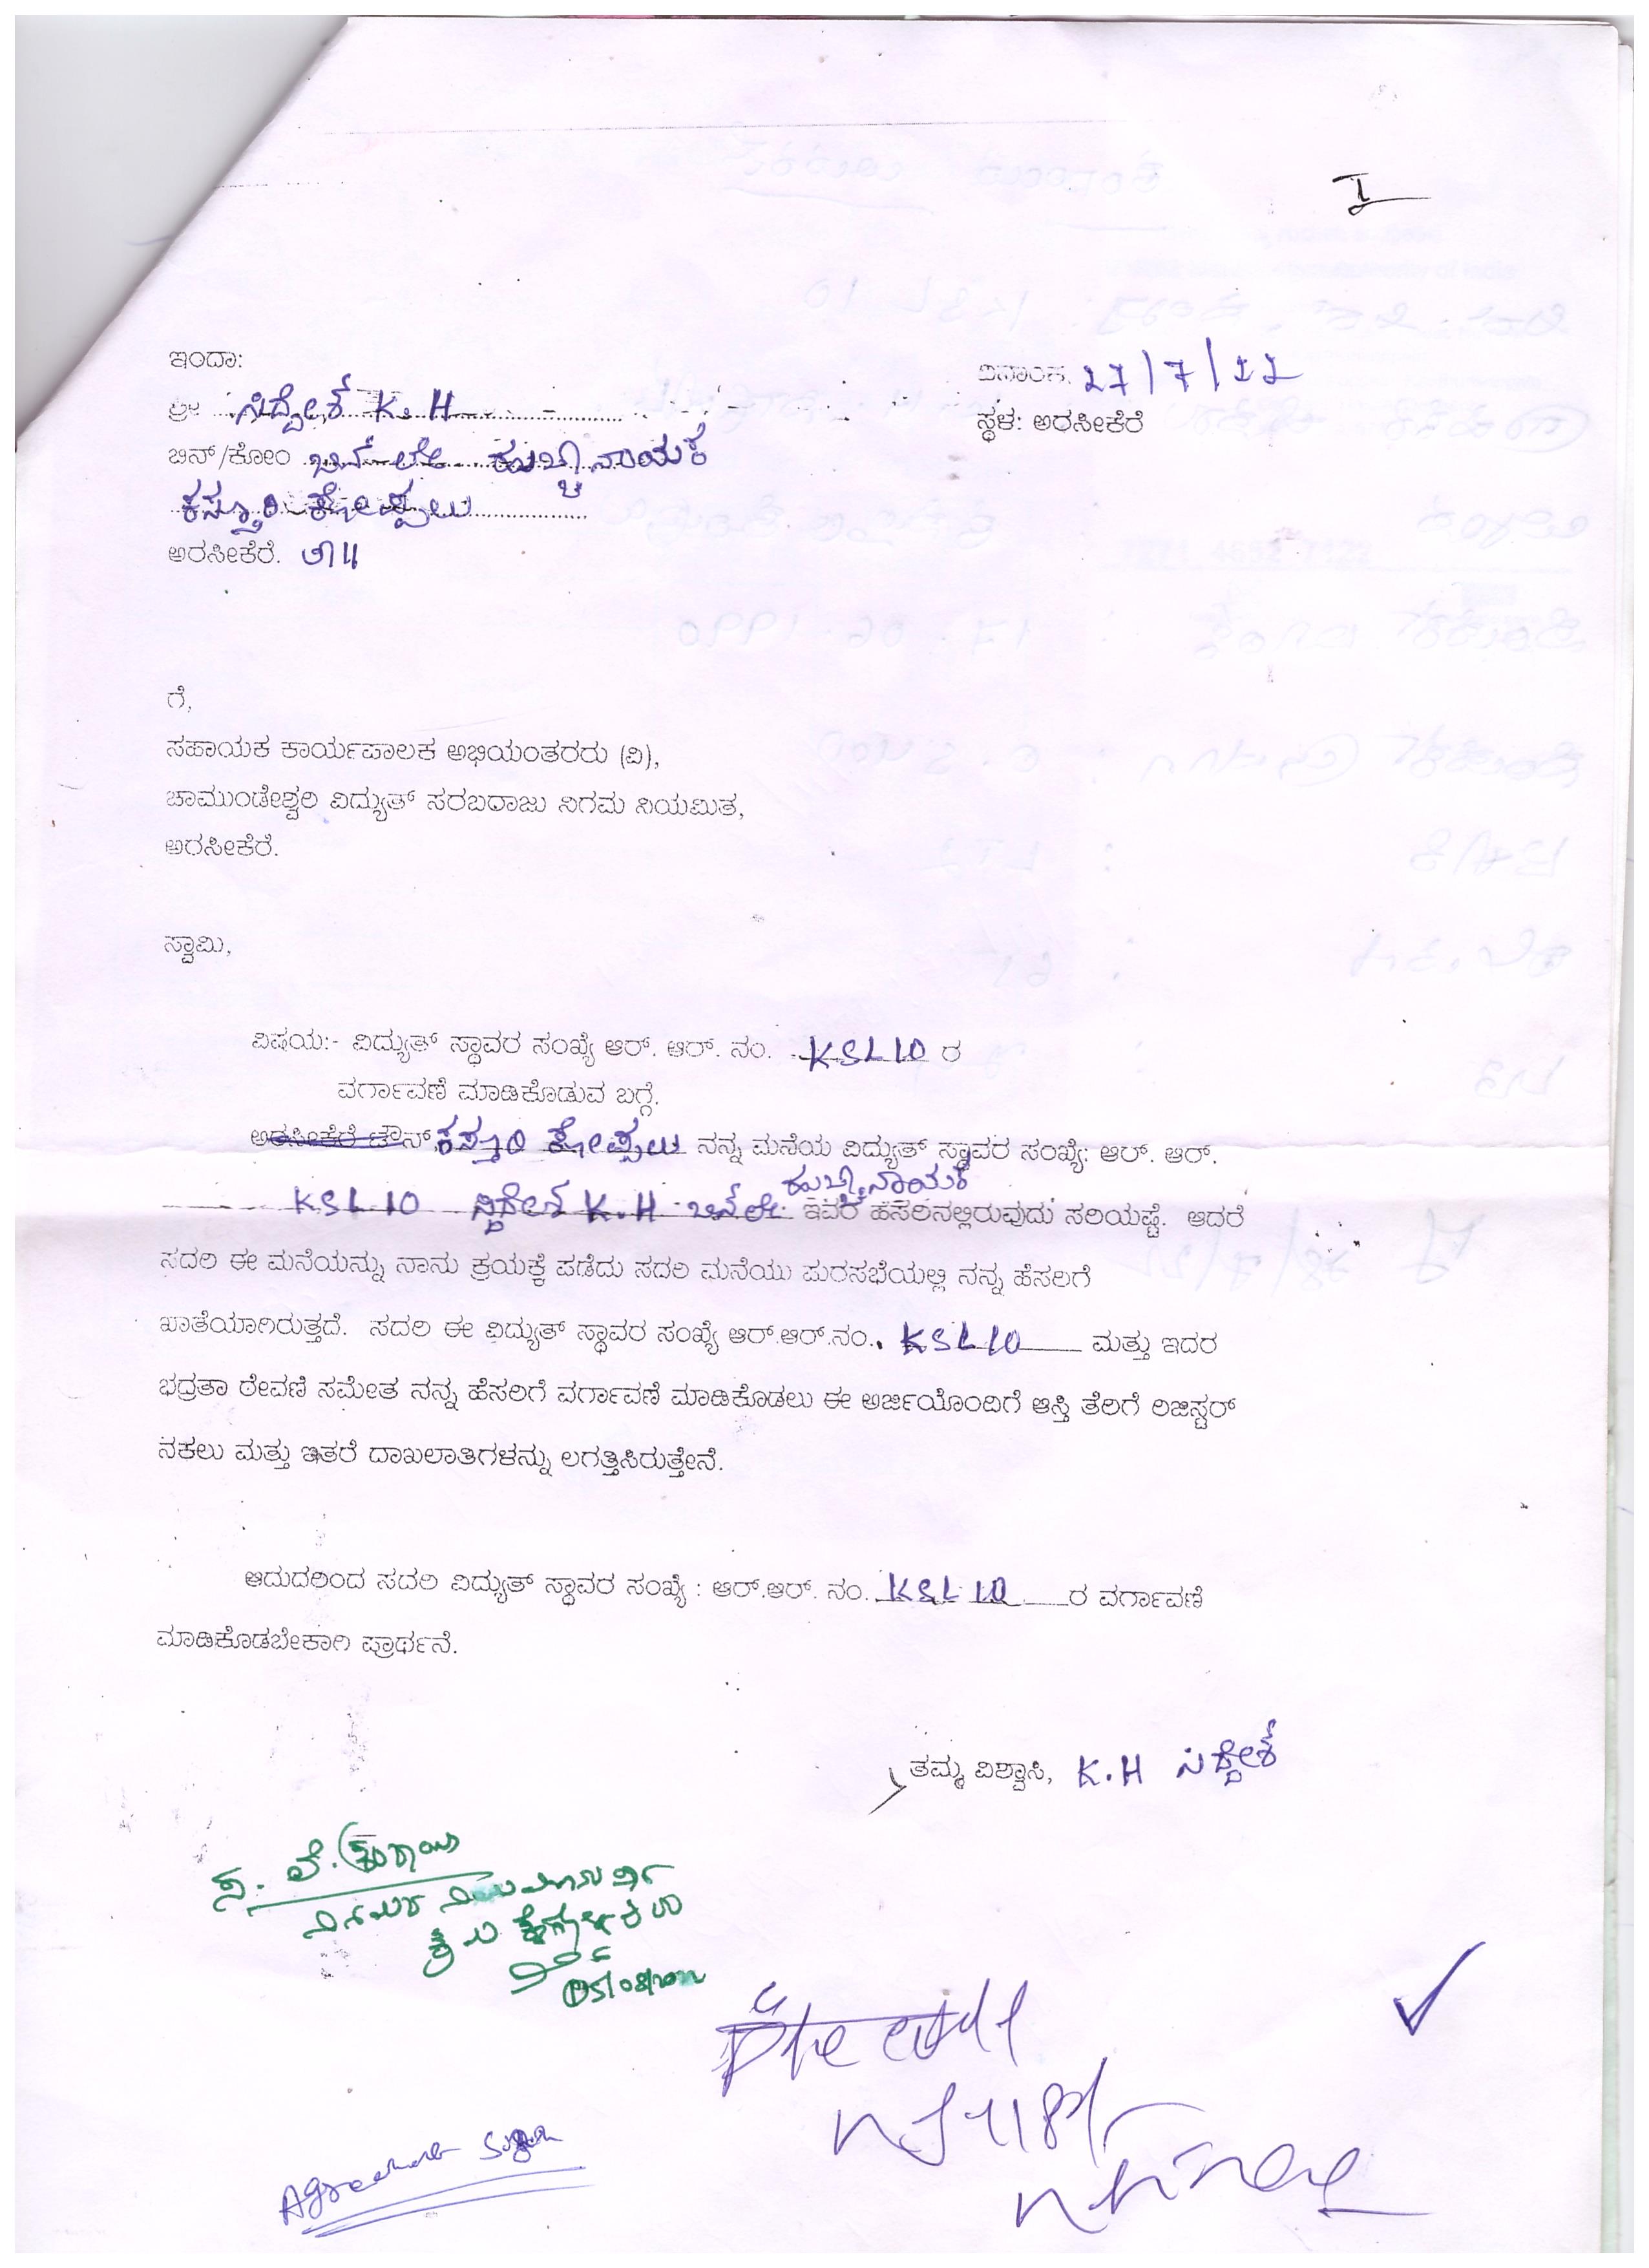 I
ಇಂದಾ:
ದಿನಾಂಕ. 27/7/22
ಶ್ರೀ ಸಿದ್ದೇಶ್ K. H
ಸ್ಥಳ: ಅರಸೀಕೆರೆ
ಬಿನ್/ಕೋಂ ಬಿನ್ ಲೇ ಹುಚ್ಚಿನಾಯಕ
ಕಸ್ತೂರಿ ಕೋಪ್ಪಲು
ಅರಸೀಕೆರೆ. ತಾ॥
ಗೆ,
ಸಹಾಯಕ ಕಾರ್ಯಪಾಲಕ ಅಭಿಯಂತರರು (ವಿ),
ಚಾಮುಂಡೇಶ್ವರಿ ವಿದ್ಯುತ್ ಸರಬರಾಜು ನಿಗಮ ನಿಯಮಿತ,
ಅರಸೀಕೆರೆ.
ಸ್ವಾಮಿ,
ವಿಷಯ:- ವಿದ್ಯುತ್ ಸ್ಥಾವರ ಸಂಖ್ಯೆ ಆರ್. ಆರ್. ನಂ. KSL10 ರ
ವರ್ಗಾವಣೆ ಮಾಡಿಕೊಡುವ ಬಗ್ಗೆ.
ಅರಸೀಕೆರೆ ಟೌನ್, ಕಸ್ತೂರಿ ಕೋಪ್ಪಲು ನನ್ನ ಮನೆಯ ವಿದ್ಯುತ್ ಸ್ಥಾವರ ಸಂಖ್ಯೆ: ಆರ್. ಆರ್.
KSL10 ಸಿದ್ದೇಶ್ K.H ಬಿನ್ ಲೇ ಹುಚ್ಚಿನಾಯಕ ಇವರ ಹೆಸರಿನಲ್ಲಿರುವುದು ಸರಿಯಷ್ಟೆ. ಆದರೆ
ಸದರಿ ಈ ಮನೆಯನ್ನು ನಾನು ಕ್ರಯಕ್ಕೆ ಪಡೆದು ಸದರಿ ಮನೆಯು ಪುರಸಭೆಯಲ್ಲಿ ನನ್ನ ಹೆಸರಿಗೆ
ಖಾತೆಯಾಗಿರುತ್ತದೆ. ಸದರಿ ಈ ವಿದ್ಯುತ್ ಸ್ಥಾವರ ಸಂಖ್ಯೆ ಆರ್.ಆರ್.ನಂ. KSL10 ಮತ್ತು ಇದರ
ಭದ್ರತಾ ಠೇವಣಿ ಸಮೇತ ನನ್ನ ಹೆಸರಿಗೆ ವರ್ಗಾವಣೆ ಮಾಡಿಕೊಡಲು ಈ ಅರ್ಜಿಯೊಂದಿಗೆ ಆಸ್ತಿ ತೆರಿಗೆ ರಿಜಿಸ್ಟರ್
ನಕಲು ಮತ್ತು ಇತರೆ ದಾಖಲಾತಿಗಳನ್ನು ಲಗತ್ತಿಸಿರುತ್ತೇನೆ.
ಆದುದರಿಂದ ಸದರಿ ವಿದ್ಯುತ್ ಸ್ಥಾವರ ಸಂಖ್ಯೆ : ಆರ್.ಆರ್. ನಂ. KSL10 ರ ವರ್ಗಾವಣೆ
ಮಾಡಿಕೊಡಬೇಕಾಗಿ ಪ್ರಾರ್ಥನೆ.
ತಮ್ಮ ವಿಶ್ವಾಸಿ, K.H ಸಿದ್ದೇಶ್
Agreement